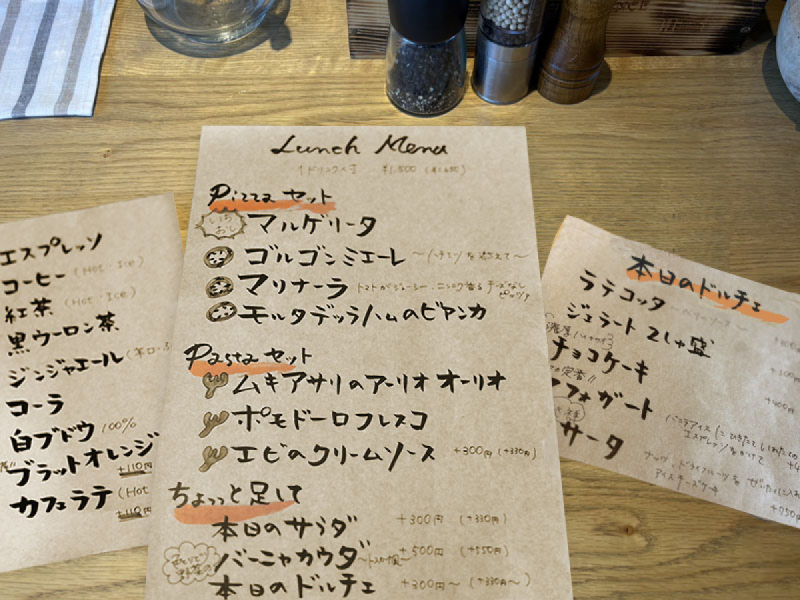 Lunch Menu
Pizza セット
いちおし マルゲリータ
ゴルゴンミエーレ 〜ハチミツを添えて〜
マリナーラ
モルタデッラハムのビアンカ
Pasta セット
ムキアサリのアーリオ オーリオ
ポモドーロフレスコ
エビのクリームソース +300円 (+330円)
ちょっっと足して
本日のサラダ +300円 (+330円)
バーニャカウダ +500円 (+550円)
本日のドルチェ +300円〜 (+330円〜)
エスプレッソ
コーヒー (Hot・Ice)
紅茶 (Hot・Ice)
黒ウーロン茶
ジンジャエール
コーラ
白ブドウ 100%
ブラットオレンジ
+110円
カフェラテ (Hot
+110円
本日のドルチェ
ラテコッタ
ジェラート 2しゅ盛
チョコケーキ
定番!!
フォガート
サータ
アイスチーズケーキ